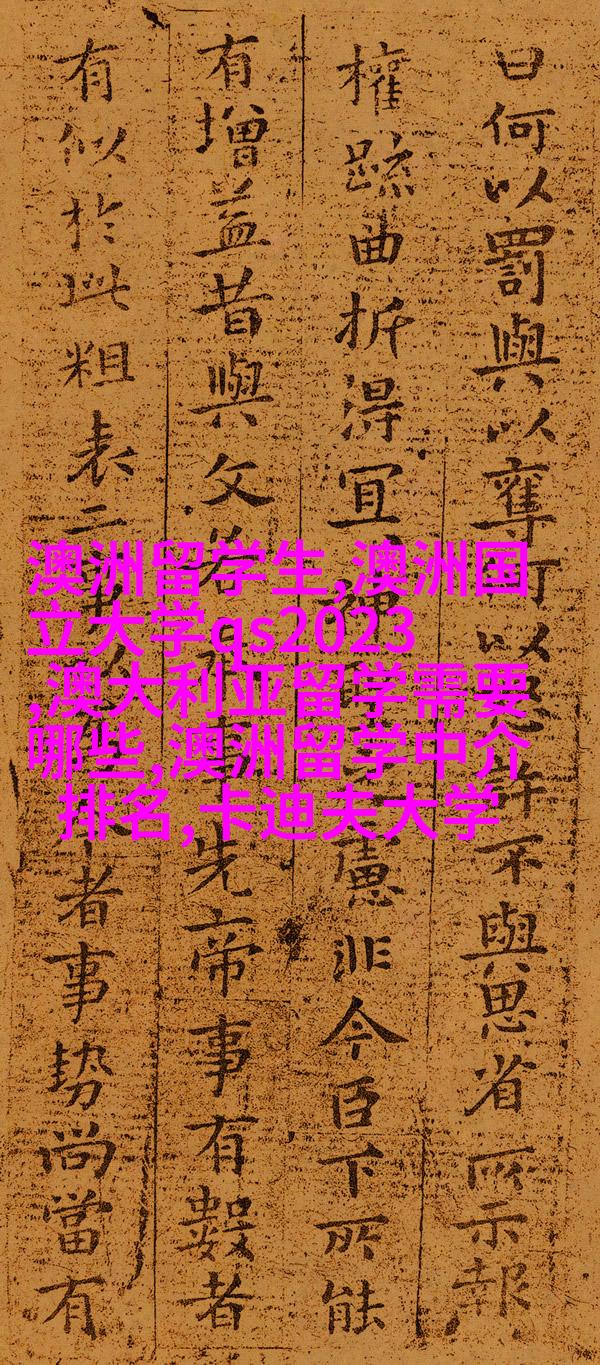 曰何以罰與以奪何以怒許不與思省所示報
權疏曲折得宜神聖之慮非今臣下所能
有增益昔與文若奉事先帝事有數者
有似於此粗表二事以為今者事勢尚當有
澳洲留学生,澳洲国
立大学qs2023
,澳大利亚留学需要
哪些,澳洲留学中介
排名,卡迪夫大学